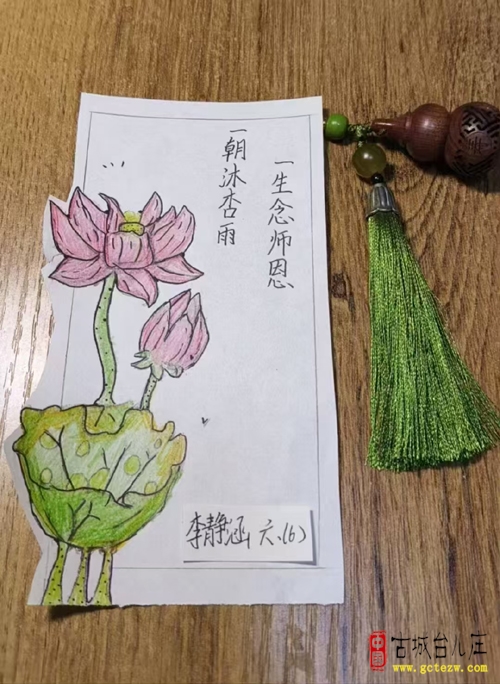 一朝沐杏雨
一生念师恩
李静涵 六.(6)
中国
古城台儿庄
www.gctezw.com